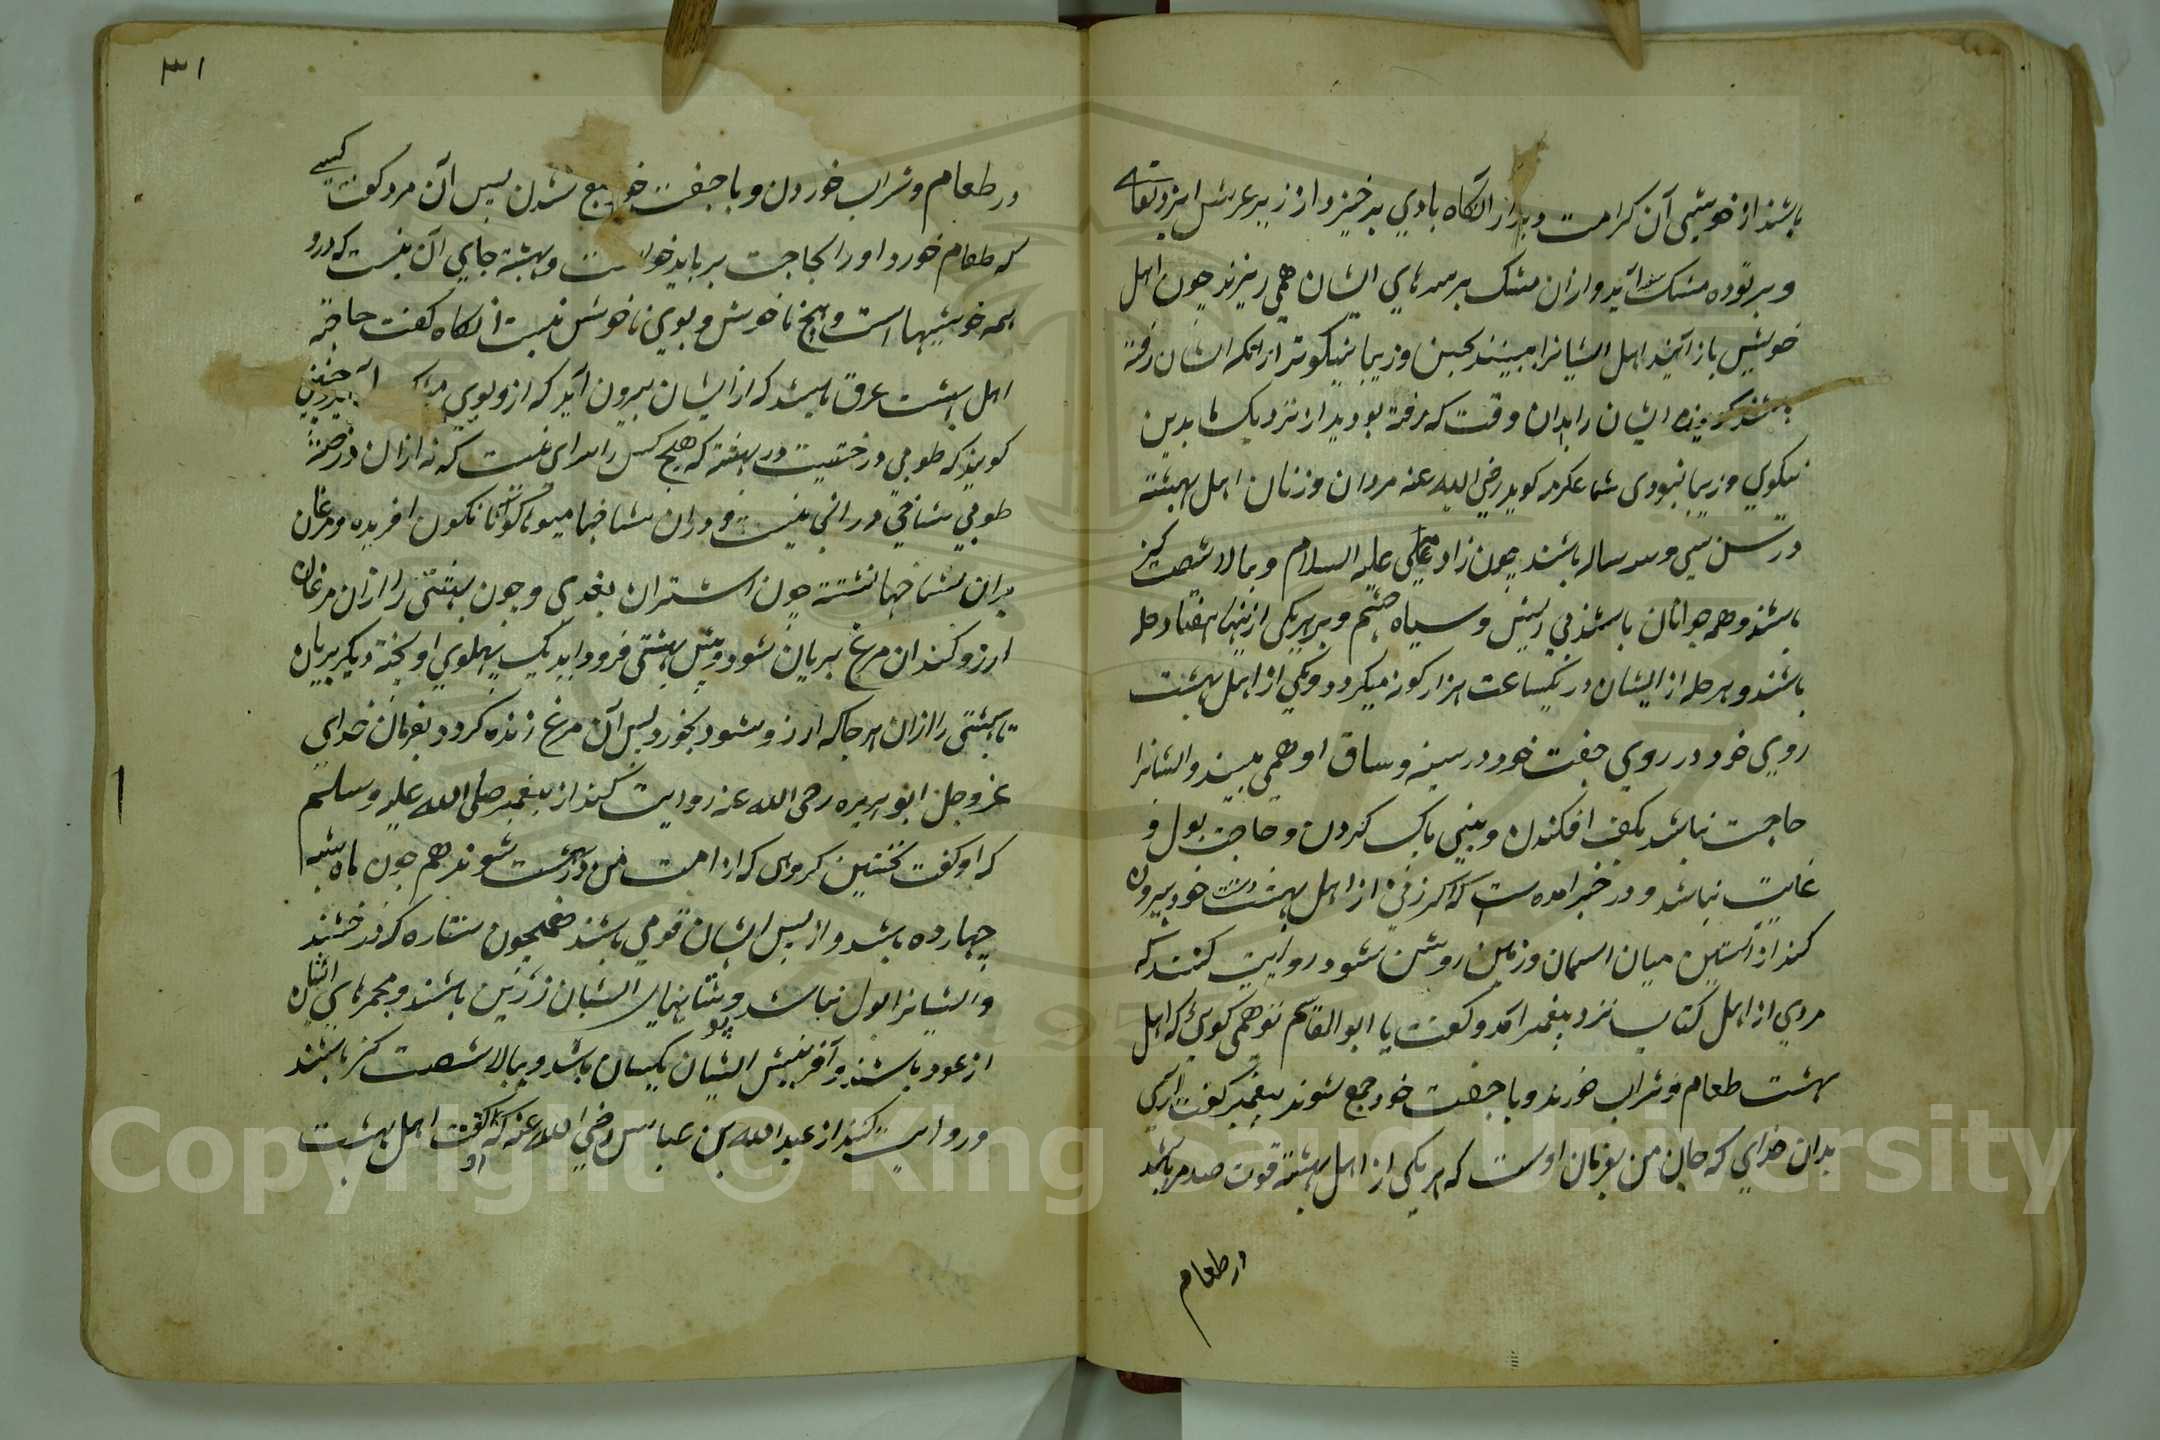 باشند از خوشی آن کرامت و دیدار آنکاه بادی بر خیزد از زیر عرش ایزد تعالی
و بر توده مشک آید و از آن مشک بر سرهای ایشان همی ریزند چون اهل
خویش باز آیند اهل ایشانرا ببینند بحسن و زیبا نیکوتر از آنکه ایشان رفته
باشند ایشان را بدان وقت که رفته بودید از نزدیک ما بدین
نیکویی و زیبا نبودی شما عکرمه کوید رضی الله عنه مردان و زنان اهل بهشت
در سن سی و سه ساله باشند چون زاد عیسی علیه السلام و ببالا شصت کز
باشند و همه جوانان باشند بی ریش و سیاه چشم و بر هر یکی ازینها هفتاد حله
باشند و هر حله از ایشان در یکساعت هزار کونه میکردد و یکی از اهل بهشت
روی خود در روی جفت خود در سینه و ساق او همی بیند و ایشانرا
حاجت نباشد بکف افکندن و بینی پاک کردن و حاجت بول و
غایت نباشد و در خبر آمده است که اکر زنی از اهل بهشت دست خود بیرون
کند از آستین میان اسمان و زمین روشن شود روایت کنند که
مردی از اهل کتاب نزد پیغمبر آمد و کفت یا ابو القاسم تو همی کویی که اهل
بهشت طعام و شراب خورند و با جفت خود جمع شوند پیغمبر کفت آری
بدان خدای که جان من بفرمان اوست که هر یکی از اهل بهشت قوت صد مرد باشد
در طعام
٣١
در طعام و شراب خوردن و با جفت جمع شدن پس آن مرد کفت کسی
که طعام خورد او را بحاجت بر باید خواست و بهشت جای آن نیست که درو
همه خوشیها است و هیچ ناخوش و بوی ناخوش نیست آنکاه کفت حاجت
اهل بهشت عرق باشد که از ایشان بیرون آید که از و بوی مشک آید
کویند که طوبی درختیست در بهشت که هیچ کس را سرای نیست که نه از آن درخت
طوبی شاخی در آنی نیست و در آن شاخها میوه کوناکون افریده و مرغان
بدان شاخها نشسته چون اشتران بغدی و چون بهشتی را از آن مرغان
ارزو کند آن مرغ بریان شود و پیش بهشتی فرود اید یک پهلوی او پخته دیکر بریان
تا بهشتی را از آن هر جا که ارزو شود بخورد پس آن مرغ زنده کردد بفرمان خدای
عز و جل ابو هریره رضی الله عنه روایت کند از پیغمبر صلی الله علیه و سلم
که او کفت نخستین کروهی که از امت من در بهشت شوند هم چون ماه شب
چهارده باشد و از پس ایشان قومی باشند همچون ستاره که درخشند
و ایشانرا بول نباشد و شانهای ایشان زرین باشند و مجمرهای ایشان
از عود باشند و آفرینش ایشان یکسان باشد و ببالا شصت کز باشند
و روایت کنند از عبدالله بن عباس رضی الله عنه که او کفت اهل بهشت
Copyright © King Saud University